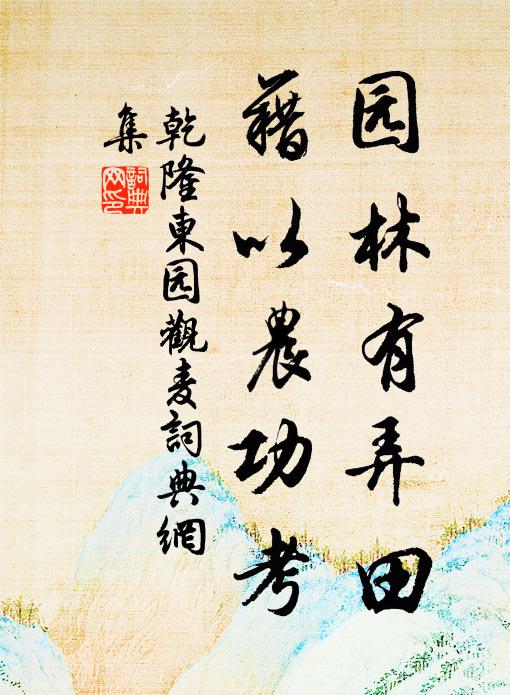 园林有弄田
藉以農功考
乾隆東园觀麦詞典網
集
詞典
网印